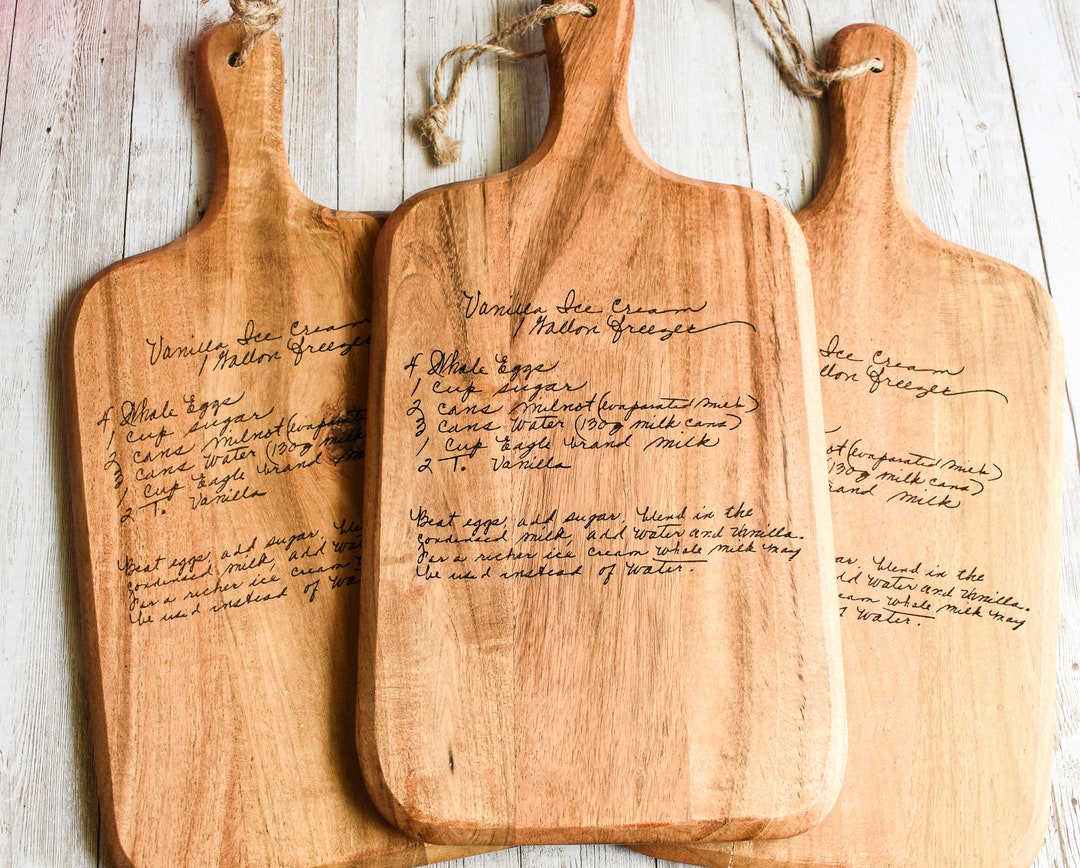 Vanilla Ice Cream
1 Gallon Freezer
4 Whole Eggs
1 cup sugar
2 cans milnot (evaporated
3 cans Water (130g milk
1 cup Eagle brand
2 T. Vanilla
Beat eggs, add sugar.
condensed milk, add
For a richer ice cream
be used instead of
Vanilla Ice Cream
1 Gallon Freezer
4 Whole Eggs
1 cup sugar
2 cans milnot (evaporated milk)
3 cans Water (130g milk cans)
1 cup Eagle brand milk
2 T. Vanilla
Beat eggs, add sugar. Blend in the
condensed milk, add Water and Vanilla.
For a richer ice cream whole milk may
be used instead of Water.
Ice Cream
Freezer
(evaporated milk)
130g milk cans)
milk
Blend in the
Water and Vanilla.
whole milk may
Water.